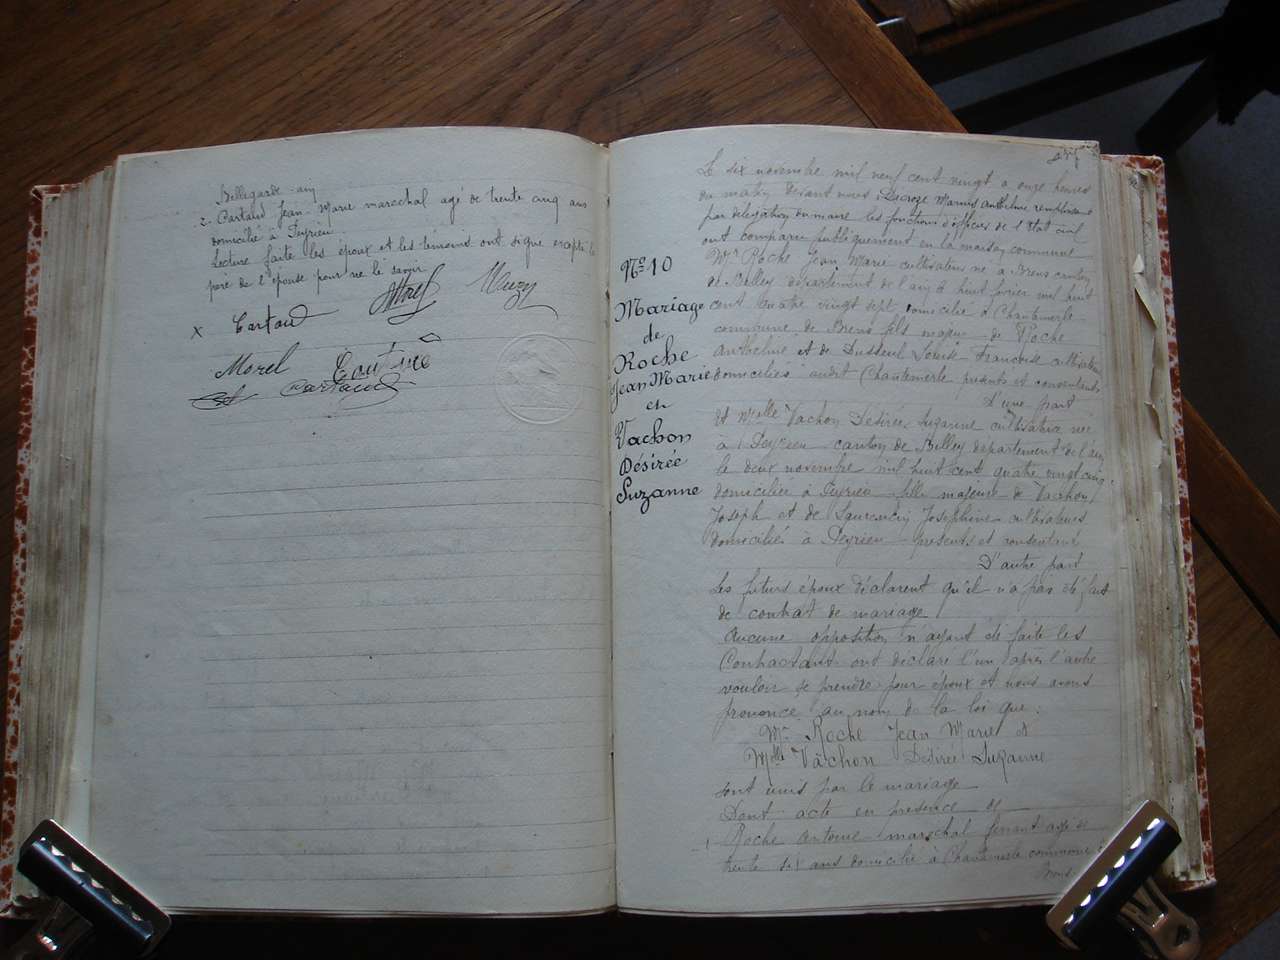 Bellegarde ain
2. Cartaud Jean-Marie marechal agé de trente cinq ans
domicilié à Peyrieu
Lecture faite les époux et les témoins ont signé excepté le
père de l'épouse pour ne le savoir
x Cartaud Morel Muzy
Morel
Cartaud
N° 10
Mariage
de
Roche
Jean Marie
et
Vachon
Désirée
Suzanne
Le six novembre mil neuf cent vingt à onze heures
du matin devant nous Decroze Marius anthelme remplissant
par délégation du maire les fonctions d'officier de l'Etat civil
ont comparu publiquement en la maison commune
Mr Roche Jean Marie cultivateur né à Brens canton
de Belley département de l'ain le huit février mil huit
cent quatre vingt sept domicilié à Chantemerle
commune de Brens fils majeur de Roche
Anthelme et de Louise Francoise cultivateurs
domiciliés audit Chantemerle présents et consentants
D'une part
et Melle Vachon Désirée Suzanne cultivatrice née
à Peyrieu canton de Belley département de l'ain
le deux novembre mil huit cent quatre vingt cinq
domiciliée à Peyrieu fille majeure de Vachon
Joseph et de Josephine cultivateurs
domiciliés à Peyrieu présents et consentant
D'autre part
Les futurs époux déclarent qu'il n'a pas été fait
de contrat de mariage
Aucune opposition n'ayant été faite les
Contractants ont déclaré l'un après l'autre
vouloir se prendre pour époux et nous avons
prononcé au nom de la loi que :
Mr Roche Jean Marie et
Melle Vachon Désirée Suzanne
sont unis par le mariage
Dont acte en présence de
1 Roche Antoine marechal ferrant agé de
trente six ans domicilié à Chantemerle commune